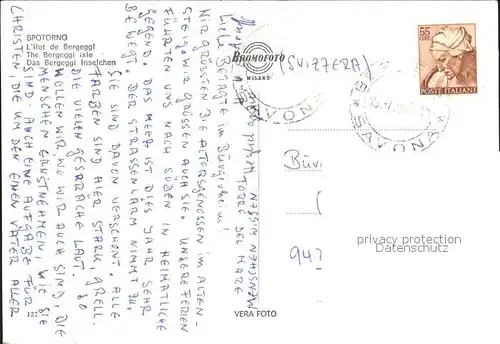 SPOTORNO
L'îlot de Bergeggi
The Bergeggi isle
Das Bergeggi Inselchen
BROMOFOTO
MILANO
(SVIZZERA)
55
LIRE
POSTE ITALIANE
SAVONA
SAVONA
TORRE DEL MARE
Liebe Betagte im Bürgerheim!
WIR GRÜSSTEN DIE ALTERSGENOSSEN IM ALTEN-
STEIG, WIR GRÜSSEN AUCH SIE. UNSERE FERIEN
FÜHRTEN UNS NACH SÜDEN IN HEIMATLICHE
GEGEND. DAS MEER IST DIES JAHR SEHR
BELEGT. DER STRASSENLÄRM NIMMT ZU.
SIE SIND DAVON VERSCHONT. ALLE
FARBEN SIND HIER STARK, GRELL.
DIE VIELEN GESPRÄCHE LAUT. SO
WOLLEN WIR WO WIR AUCH SIND, DIE
MENSCHEN ERNSTNEHMEN, WIE SIE
SIND. AUCH EINE AUFGABE FÜR
CHRISTEN, DIE UM DEN EINEN VATER ALLER
MENSCHEN WISSEN
Bür
(
947
privacy protection
Datenschutz
VERA FOTO